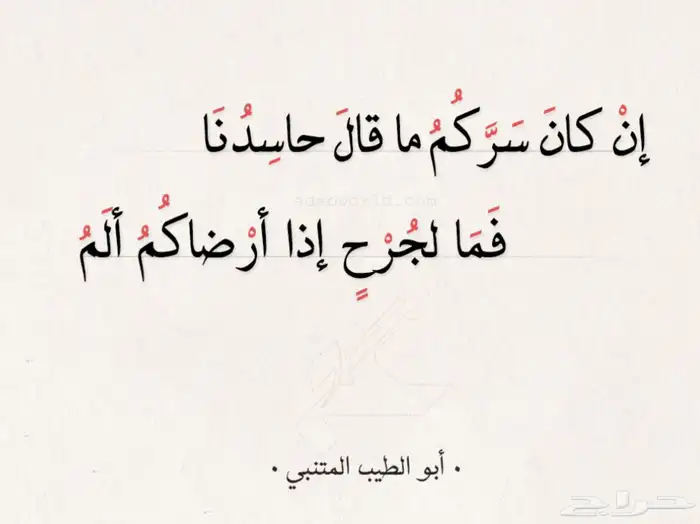 إنْ كانَ سَرَّكُمُ ما قالَ حاسِدُنَا
adabworld.com
فَمَا لجُرْحٍ إذا أرْضاكُمُ ألَمُ
· أبو الطيب المتنبي ·
حراج